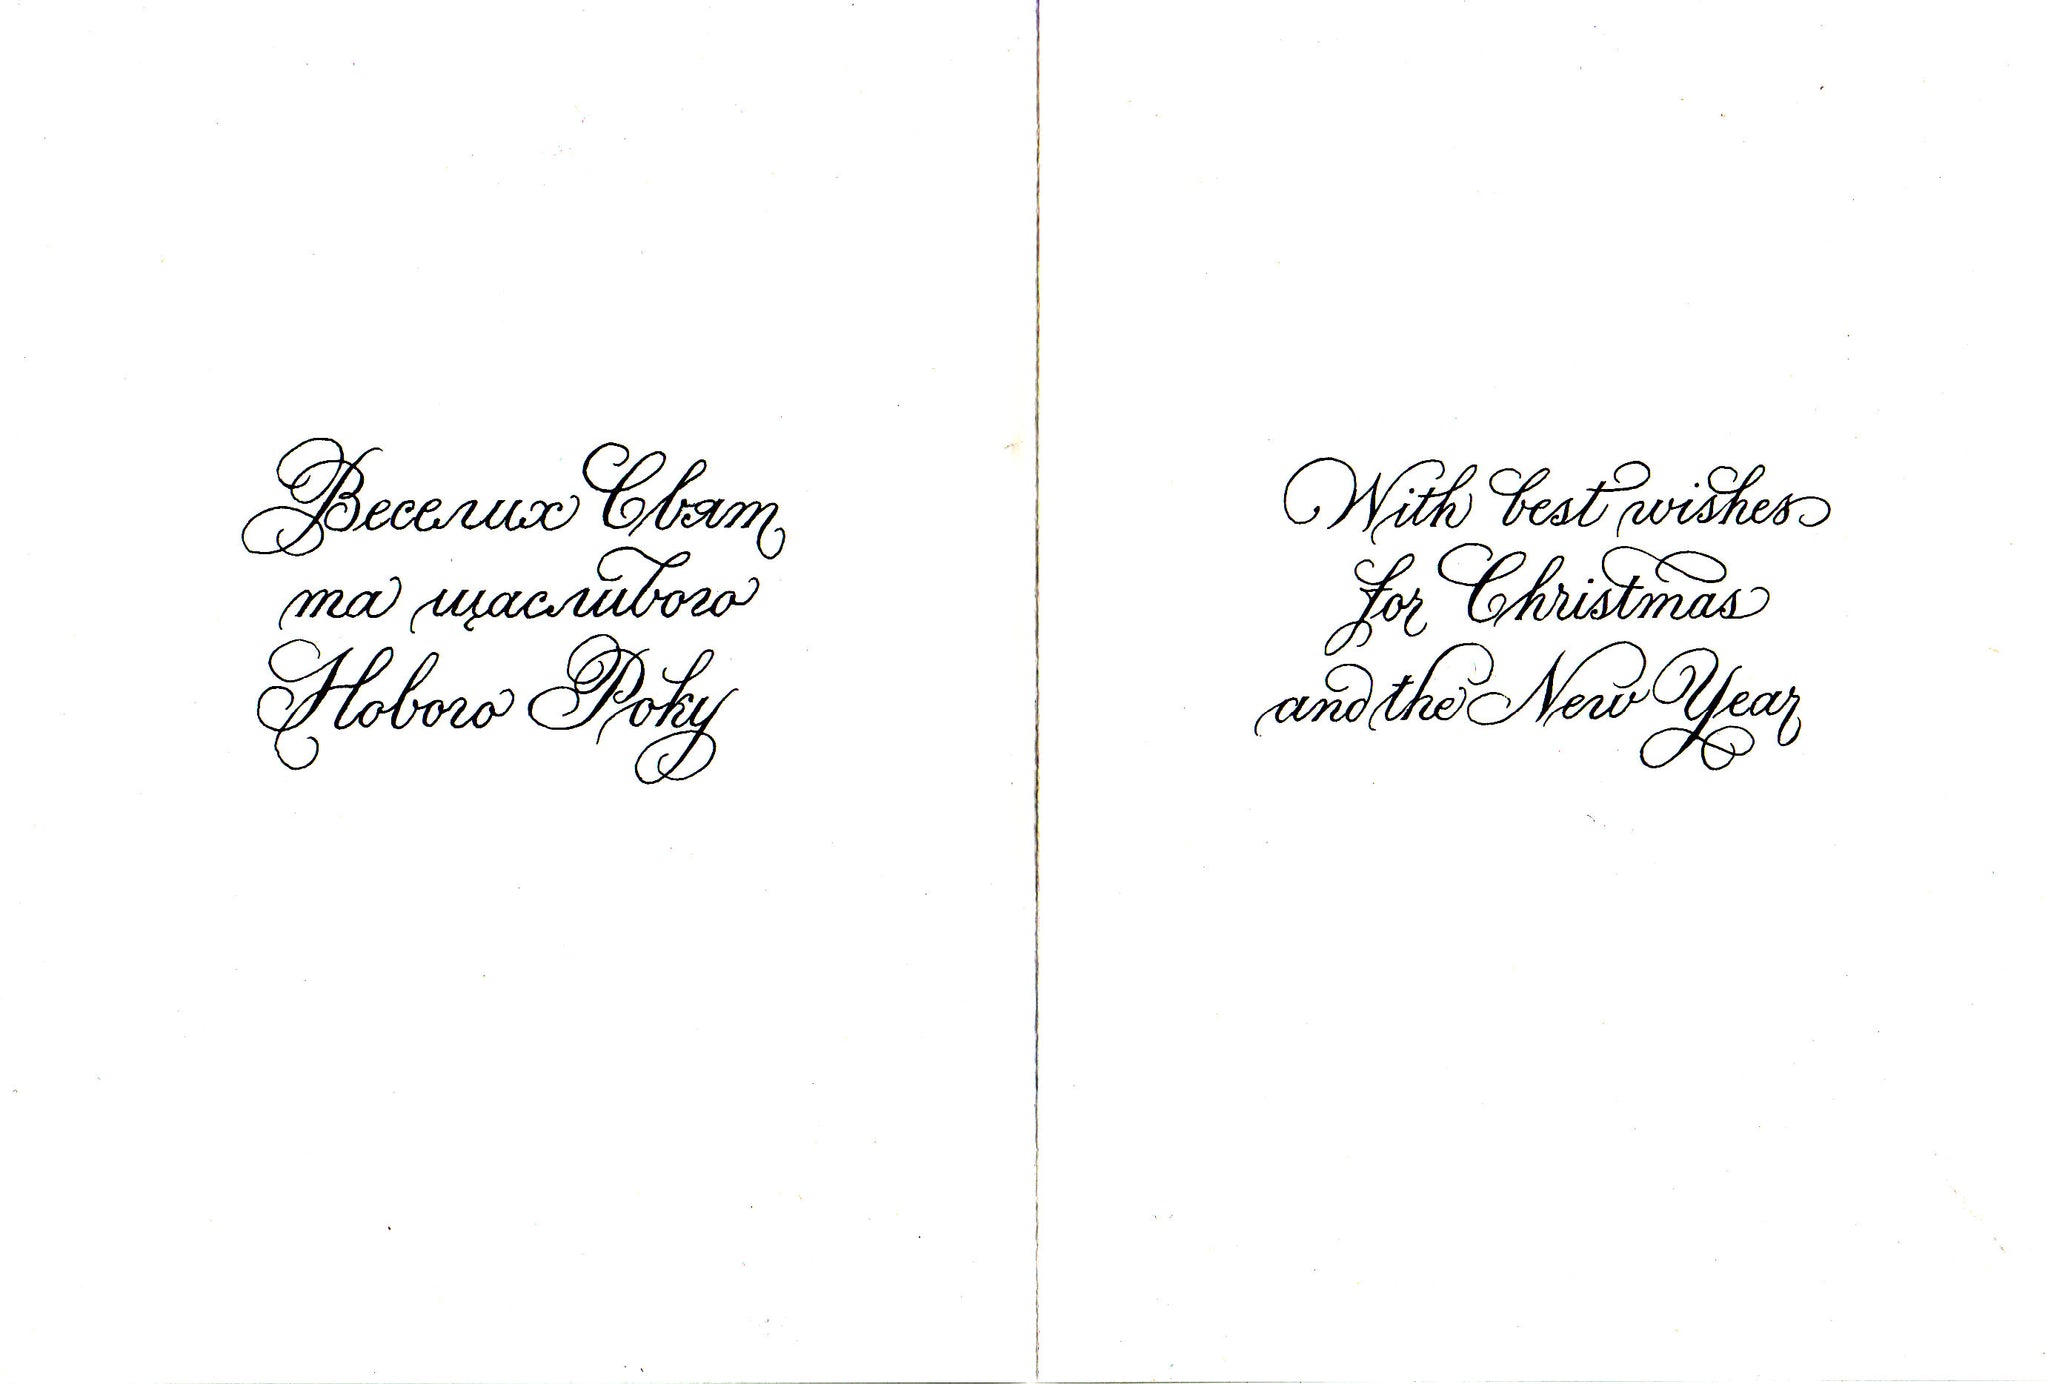 Веселих Свят
та щасливого
Нового Року
With best wishes
for Christmas
and the New Year